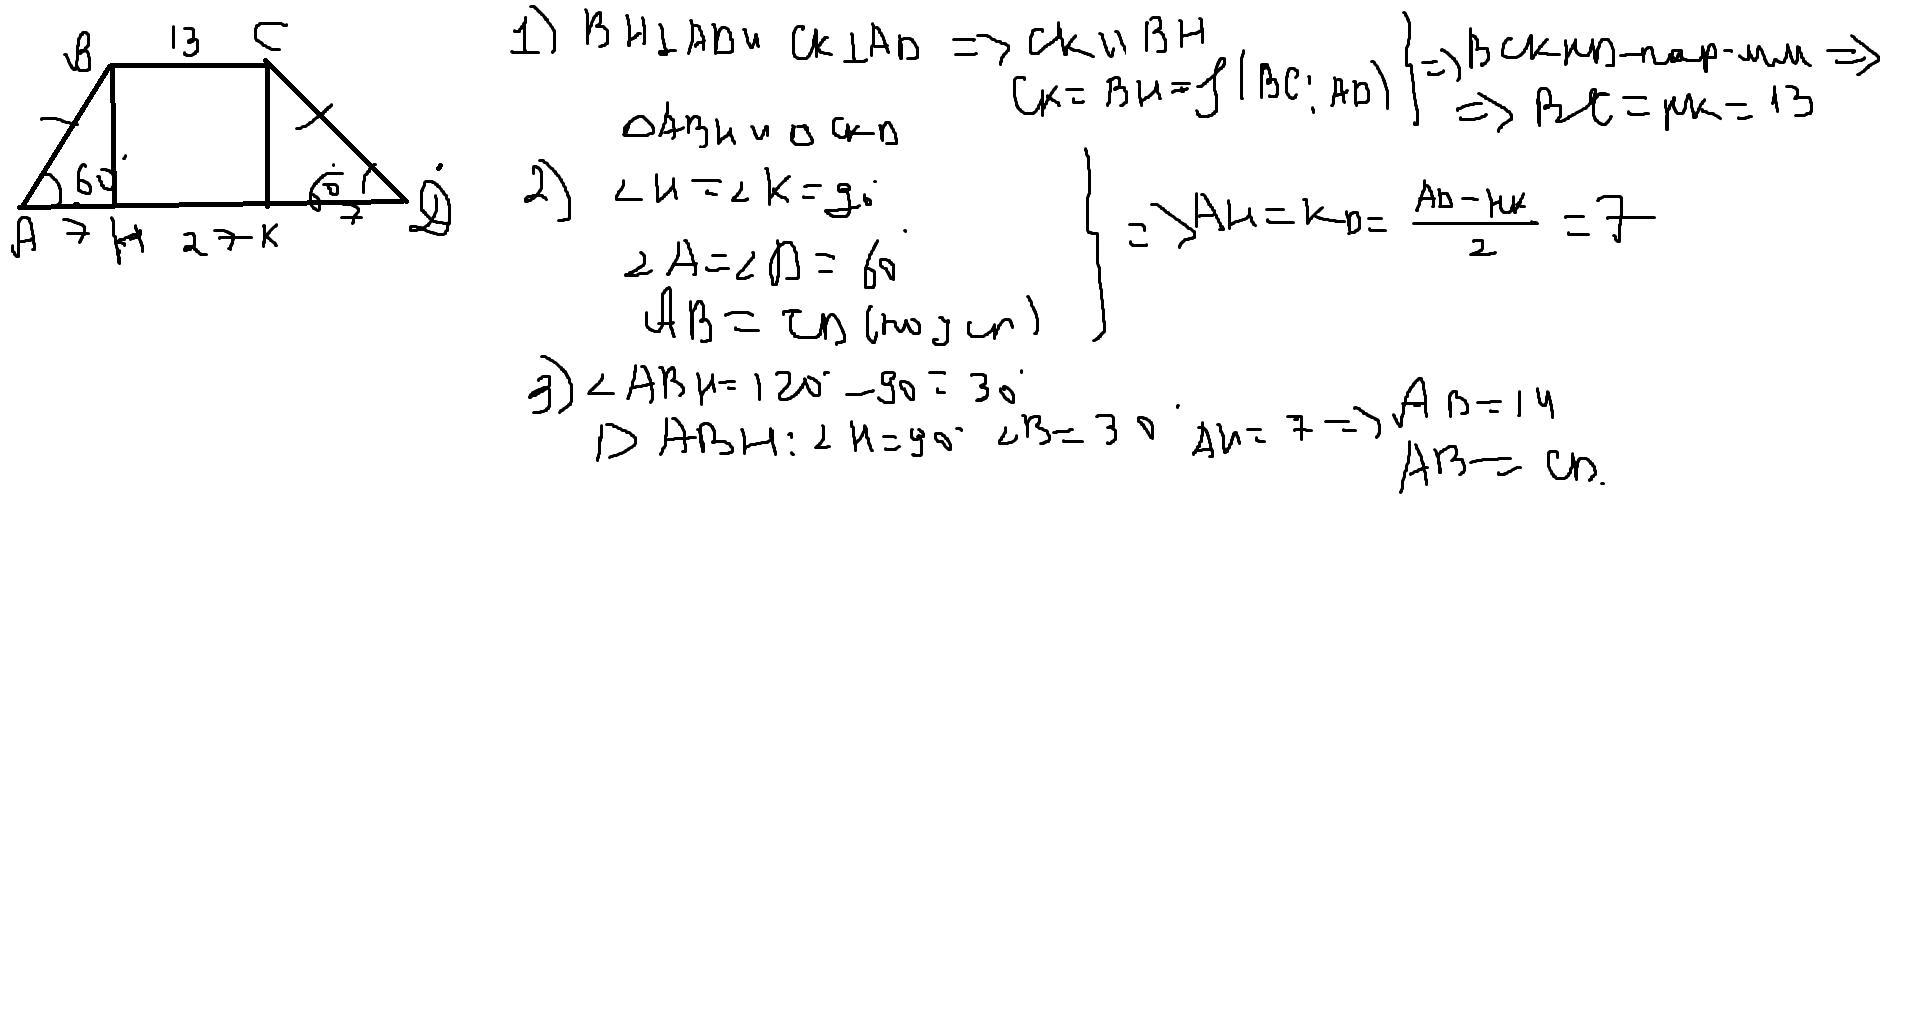 B 13 C
60° 60°
A 7 H 27 K 7 D
1) BH⊥AD и CK⊥AD => CK \\ BH
CK = BH = ρ(BC; AD) } => BCKH - пар-мм =>
=> BC = HK = 13
△ABH и △CKD
2) ∠H = ∠K = 90°
∠A = ∠D = 60°
AB = CD (по усл) } => AH = KD = AD - HK / 2 = 7
3) ∠ABH = 120° - 90 = 30°
▷ ABH: ∠H = 90° ∠B = 30° AH = 7 => AB = 14
AB = CD.